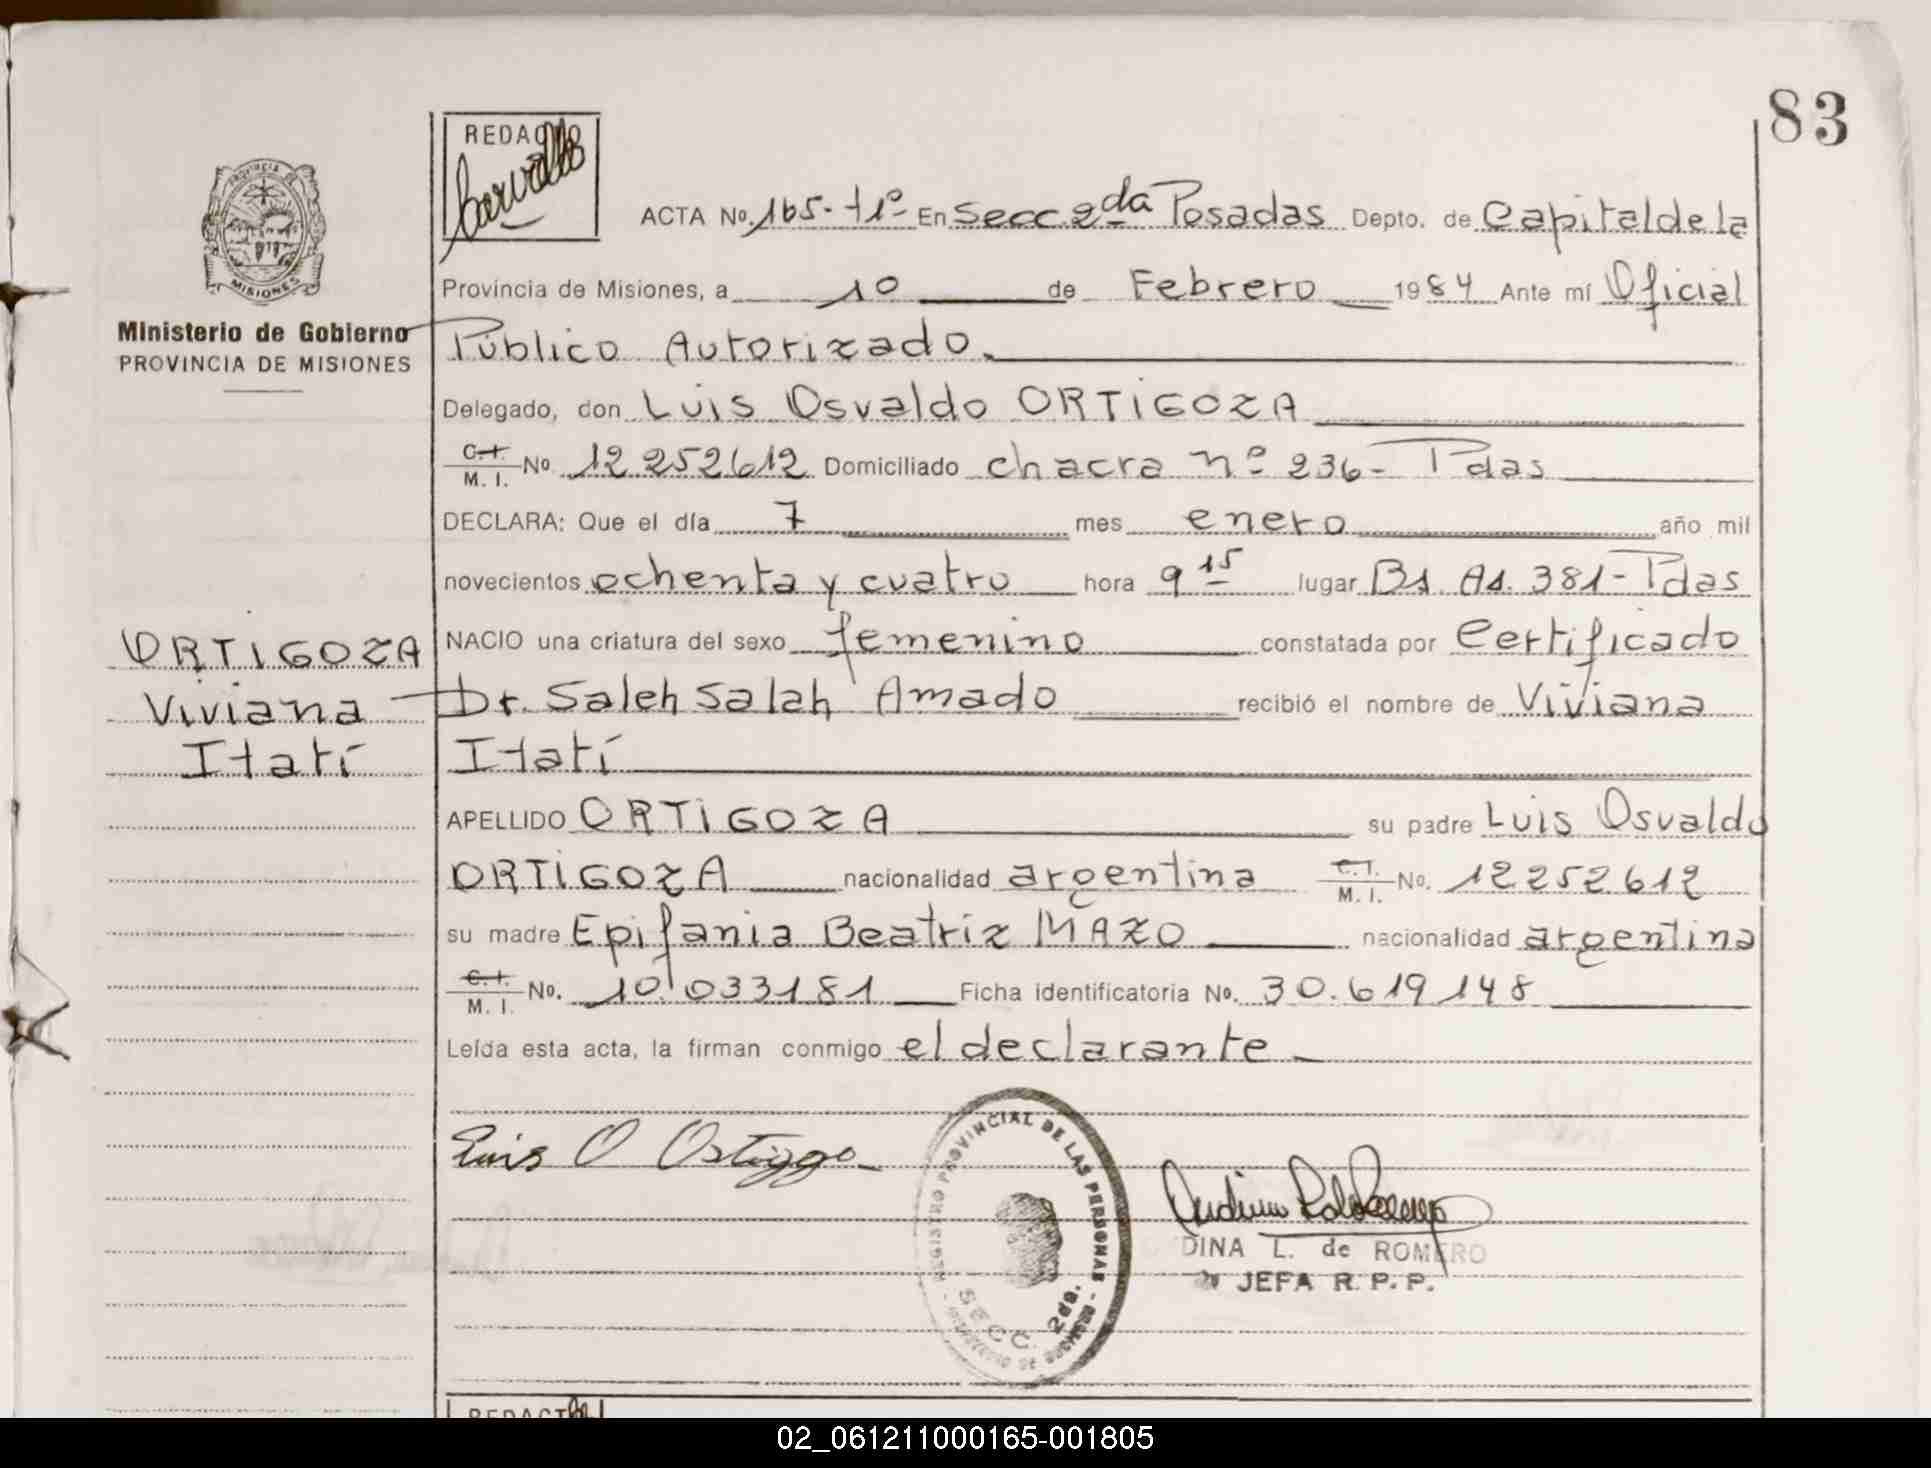 83
REDACTO
ACTA No. 165-t1º- En Secc. 2da Posadas Depto. de Capital de la
PROVINCIA DE
MISIONES
Provincia de Misiones, a 10 de Febrero 1984 Ante mí Oficial
Ministerio de Gobierno
PROVINCIA DE MISIONES
Público Autorizado.
Delegado, don Luis Osvaldo ORTIGOZA
C.I.
M. I. No. 12252612 Domiciliado chacra nº 236- Pdas
DECLARA: Que el día 7 mes enero año mil
novecientos ochenta y cuatro hora 9 15 lugar Bs. As. 381-Pdas
ORTIGOZA
Viviana
Itatí
NACIO una criatura del sexo femenino constatada por Certificado
Dr. Saleh Salah Amado recibió el nombre de Viviana
Itatí
APELLIDO ORTIGOZA su padre Luis Osvaldo
ORTIGOZA nacionalidad argentina C.I.
M. I. No. 12252612
su madre Epifania Beatriz MAZO nacionalidad argentina
C.I.
M. I. No. 10.033181 Ficha identificatoria No. 30.619148
Leída esta acta, la firman conmigo el declarante
Luis O Ortigoza
REGISTRO PROVINCIAL DE LAS PERSONAS
SECC. 2da.
DINA L. de ROMERO
JEFA R. P. P.
REDACTO
02_061211000165-001805